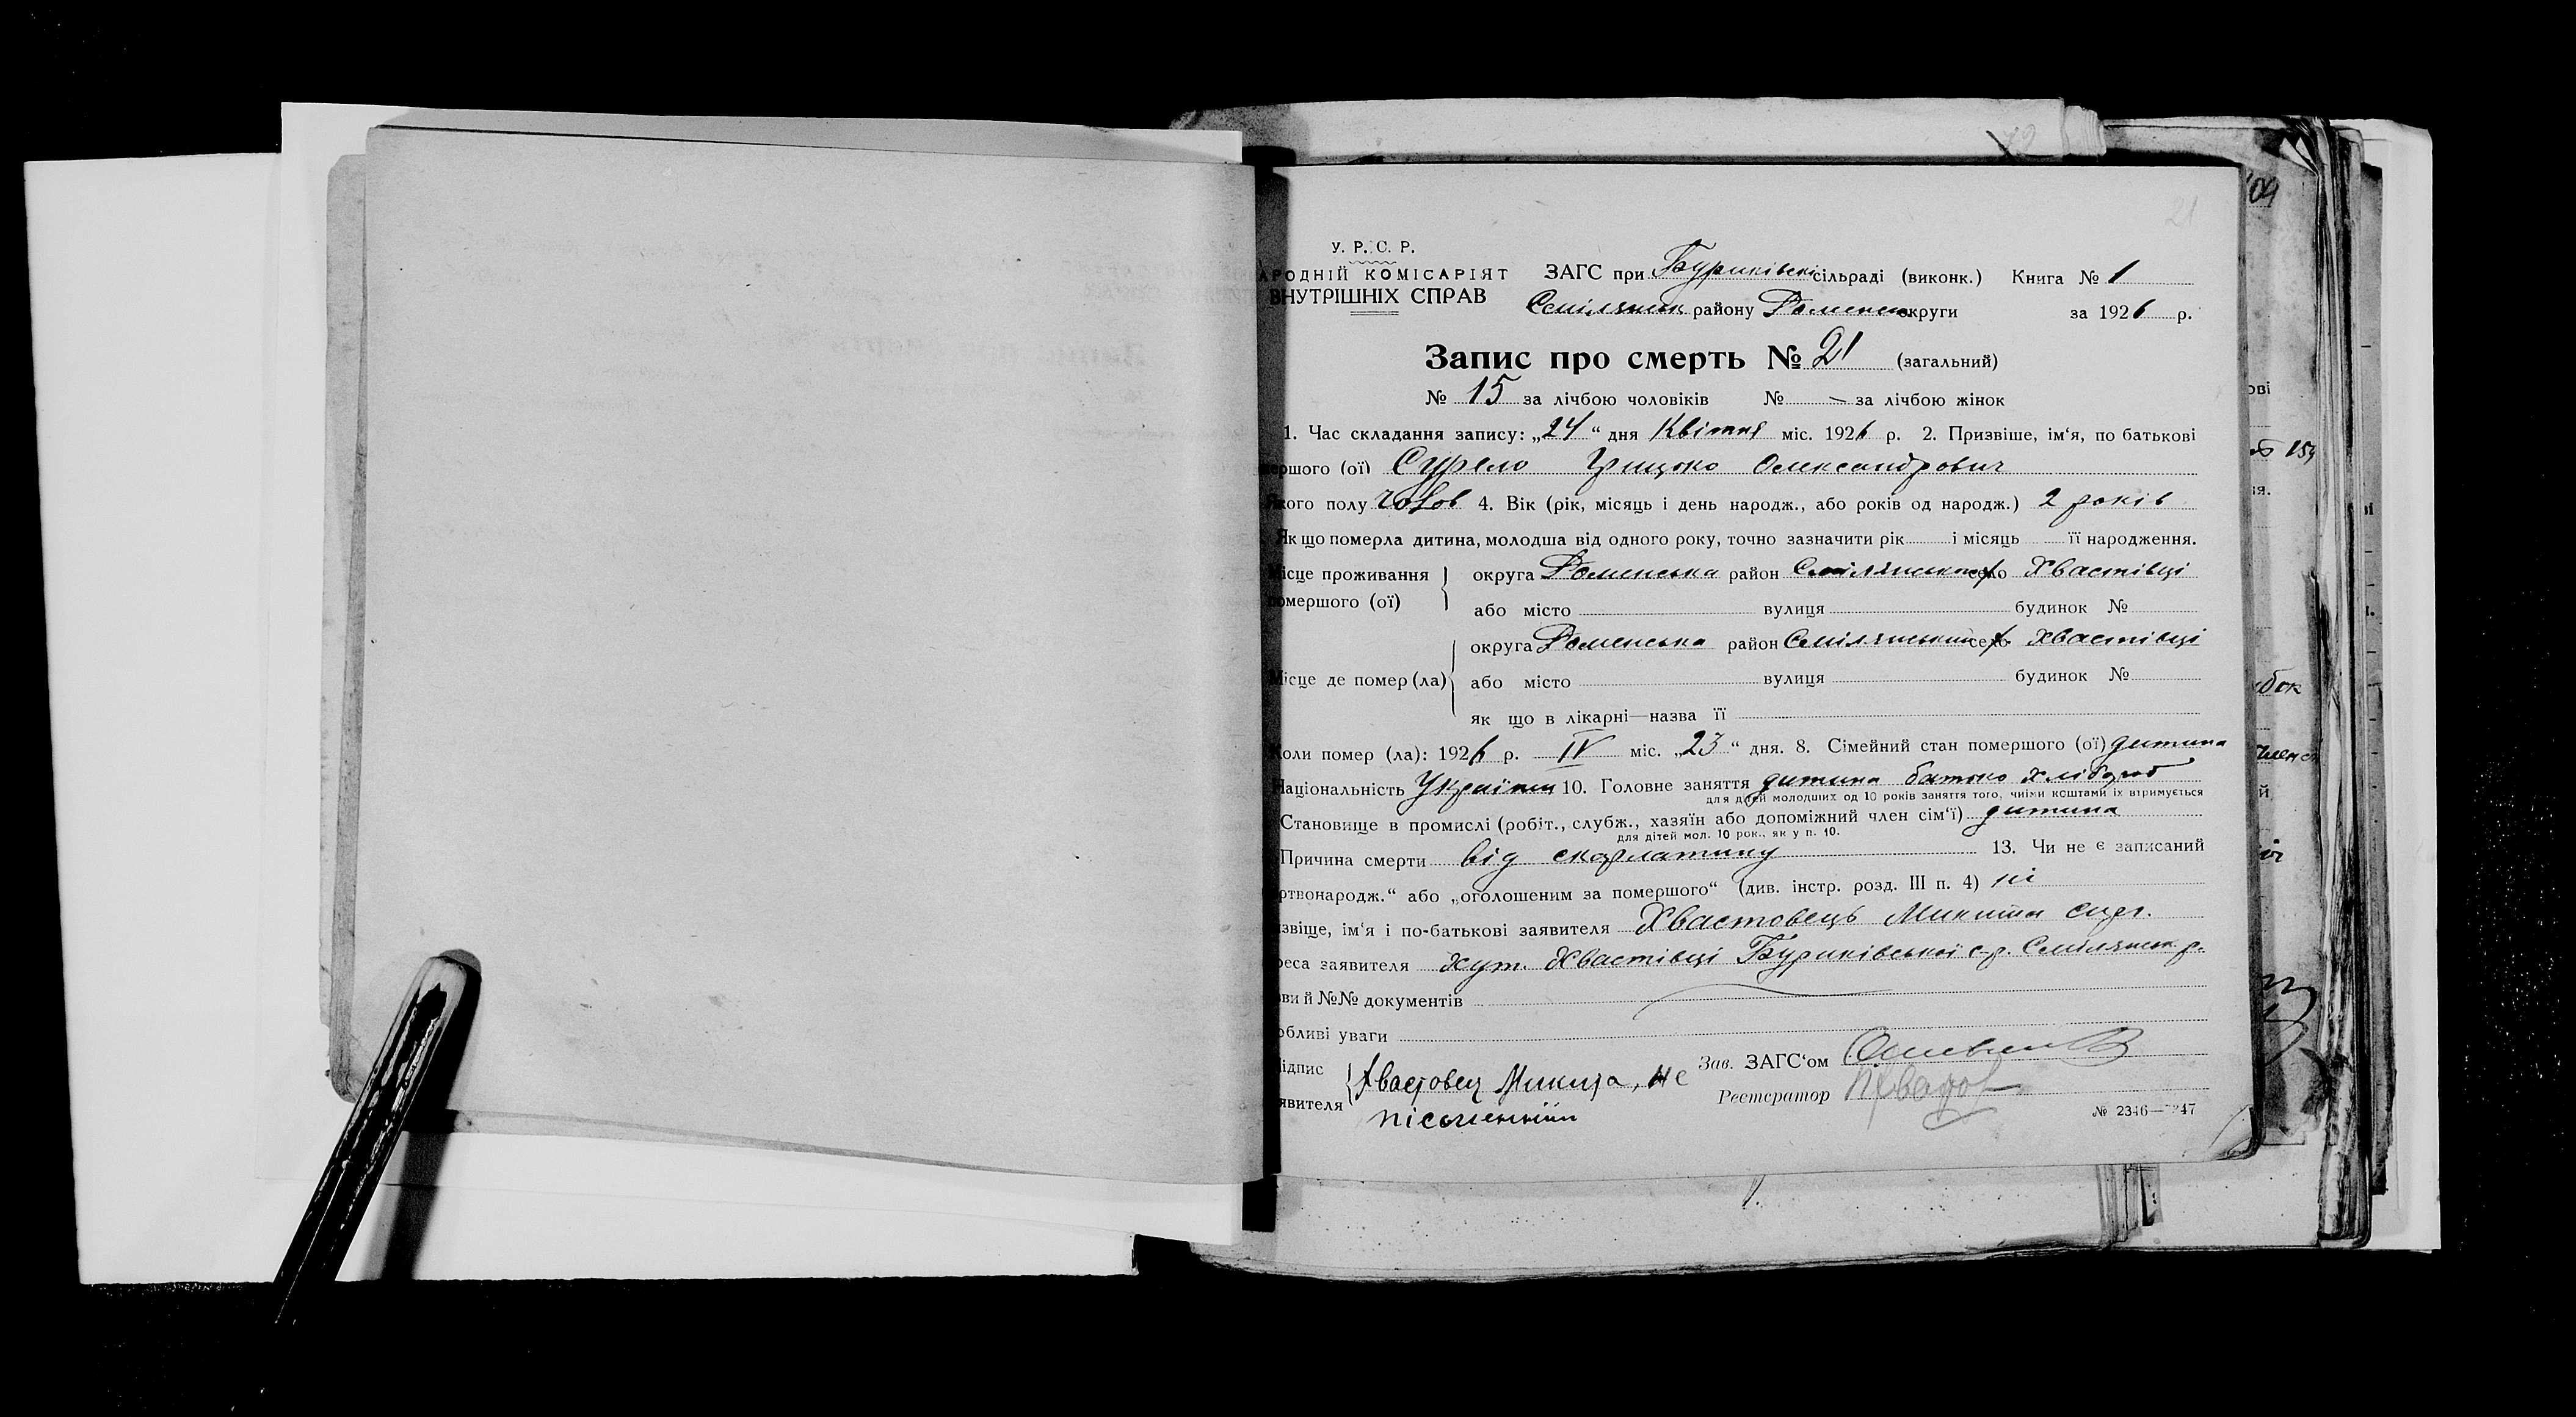 21
У. Р. С. Р.
АРОДНІЙ КОМІСАРІЯТ ЗАГС при Буриківські сільраді (виконк.) Книга № 1
ВНУТРІШНІХ СПРАВ Смілянськ району Роменськ округи за 1926 р.
Запис про смерть № 21 (загальний)
№ 15 за лічбою чоловіків № — за лічбою жінок
1. Час складання запису: „24“ дня Квітня міс. 1926 р. 2. Призвіше, ім‘я, по батькові
мершого (ої) Грицько Олександрович
якого полу чолов 4. Вік (рік, місяць і день народж., або років од народж.) 2 років
Як що померла дитина, молодша від одного року, точно зазначити рік і місяць її народження.
Місце проживання округа Роменська район Смілянський х Хвастівці
помершого (ої) або місто вулиця будинок №
округа Роменська район Смілянський х. Хвастівці
Місце де помер (ла) або місто вулиця будинок №
як що в лікарні—назва її
Коли помер (ла): 1926 р. IV міс. „23“ дня. 8. Сімейний стан помершого (ої) дитина
Національність Українец 10. Головне заняття дитина батько хлібороб
для дітей молодших од 10 років заняття того, чиїми коштами їх втримується
Становище в промислі (робіт., служб., хазяїн або допоміжний член сім‘ї) дитина
для дітей мол. 10 рок., як у п. 10.
Причина смерти від скарлатину 13. Чи не є записаний
ртвонародж.“ або „оголошеним за помершого“ (див. інстр. розд. III п. 4) ні
ізвіще, ім‘я і по-батькові заявителя Хвастовець Микита
реса заявителя хут. Хвастівці Буриківської с-р. Смілянськ р.
ви й №№ документів
обливі уваги
Підпис Хвастовец Микита, не Зав. ЗАГС‘ом
явителя пісьменній Реєстратор
№ 2346—